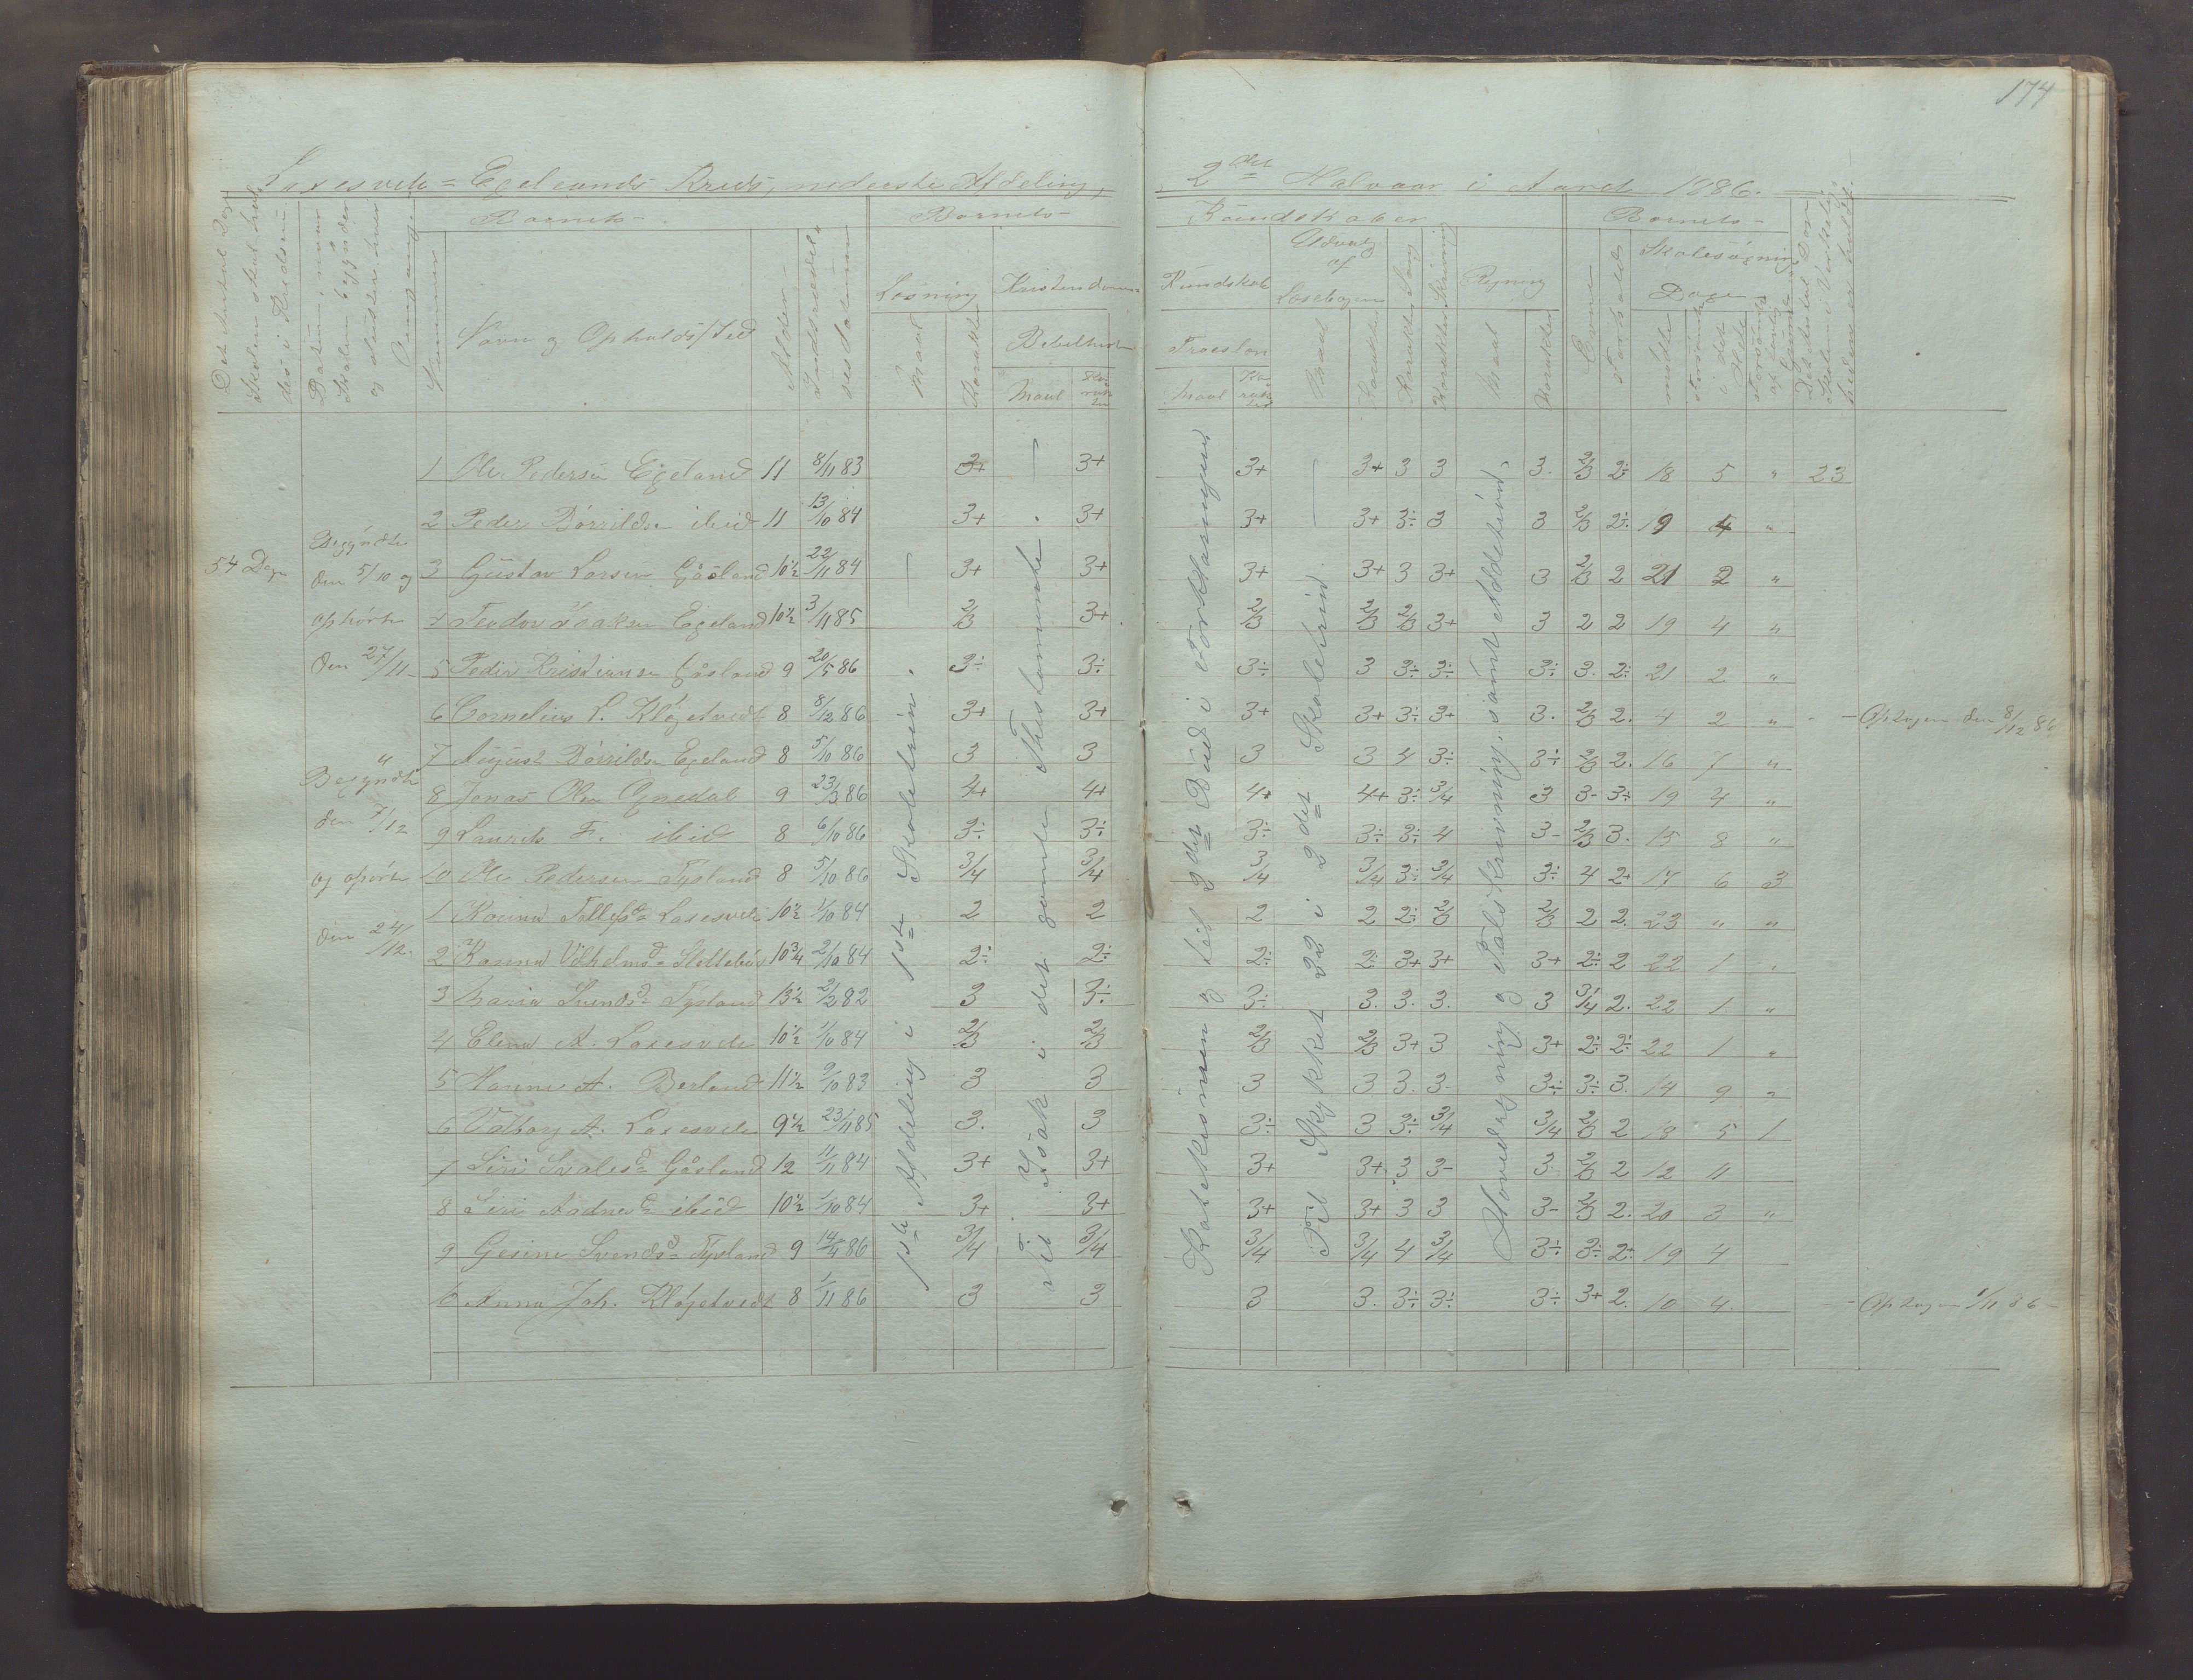 174
Laxesvele = Egelands Kreds, nederste Afdeling, 2det Halvaar i Aaret 1886.
Det Antal Dage Skolen skal holdes i Kredsen
Datum, naar Skolen begynder og slutter hver Omgang
Barnets
Barnets
Kundskaber
Barnets
Nummer
Navn og Opholdssted
Alder
Indtrædelsesdatum
Læsning
Kristendoms
Kundskab
Udvalg af Læsebogen
Sang
Skrivning
Regning
Evne
Forhold
Skolesøgning
Dage
Maal
Karakter
Bibelhistorie
Troeslæren
mødte
forsømte i det Hele
forsømte af lovlig Grund
Det Antal Dage Skolen i Virkeligheden er holdt
54 Dage
Begyndte den 5/10 og ophørte den 27/11
Begyndte den 7/12 og ophørte den 24/12.
1 Ole Pedersen Egeland 11 8/11 83 3+ 3+ 3+ 3+ 3 3 3. 2/3 2÷ 18 5 " 23
2 Peder Børrilds. ibid 11 13/10 84 3+ 3+ 3+ 3+ 3÷ 3 3 2/3 2÷ 19 4 "
3 Gustav Larsen Gåsland 10½ 22/11 84 3+ 3+ 3+ 3+ 3 3+ 3 2/3 2 21 2 "
4 Teodor Isaksen Egeland 10½ 3/11 85 2/3 3+ 2/3 2/3 2/3 3+ 3 2 2 19 4 "
5 Peder Kristiansen Gåsland 9 20/5 86 3÷ 3÷ 3÷ 3 3÷ 3÷ 3÷ 3. 2÷ 21 2 "
6 Cornelius L. Kløgetvedt 8 8/12 86 3+ 3+ 3+ 3+ 3÷ 3+ 3. 2/3 2. 4 2 " Optagen den 8/12 86
7 August Børrilds. Egeland 8 5/10 86 3 3 3 3 4 3÷ 3÷ 2/3 2. 16 7 "
8 Jonas Olsen Ognedal 9 23/3 86 4+ 4+ 4+ 4+ 3÷ 3/4 3 3- 3÷ 19 4 "
9 Laurits F. ibid 8 6/10 86 3÷ 3÷ 3÷ 3÷ 3÷ 4 3- 2/3 3. 15 8 "
10 Ole Pedersen Tysland 8 5/10 86 3/4 3/4 3/4 3/4 3÷ 3/4 3÷ 4 2+ 17 6 3
1 Karina Tollefsd. Laxesvele 10½ 1/10 84 2 2 2 2 2÷ 2/3 2/3 2 2. 23 " "
2 Hanna Vilhelmsd. 10¾ 2/10 84 2÷ 2÷ 2÷ 2÷ 3+ 3+ 3+ 2÷ 2 22 1 "
3 Maria Svendsd. Tysland 13½ 2/2 82 3 3÷ 3÷ 3. 3. 3. 3 3/4 2. 22 1 "
4 Elena A. Laxesvele 10½ 1/10 84 2/3 2/3 2/3 2/3 3+ 3 3+ 2÷ 2÷ 22 1 "
5 Hanne A. Berland 11½ 9/10 83 3 3 3 3 3. 3- 3÷ 3÷ 3. 14 9 "
6 Valborg A. Laxesvele 9½ 23/11 85 3. 3 3÷ 3 3÷ 3/4 3/4 2/3 2 18 5 1
7 Siri Svalesd. Gåsland 12 11/11 84 3+ 3+ 3+ 3+ 3 3- 3 2/3 2 12 11
8 Siri Aadnesd. ibid 10½ 1/10 84 3+ 3+ 3+ 3+ 3 3 3- 2/3 2. 20 3 "
9 Gesine Svendsd. Tysland 9 14/4 86 3/4 3/4 3/4 3/4 4 3/4 3÷ 3÷ 2÷ 19 4
10 Anna Joh. Kløgetvedt 8 1/11 86 3 3 3 3. 3÷ 3÷ 3÷ 3+ 2. 10 4. Optagen 1/11 86
1ste Afdeling i 1ste Skoletrin.
Til Isak i det gamle Testamente.
Katekismen til 2det Bud i Forklaringen
Til Stykket 22 i 2det Skoletrin
Hovedregning og Talskrivning, samt Addition.